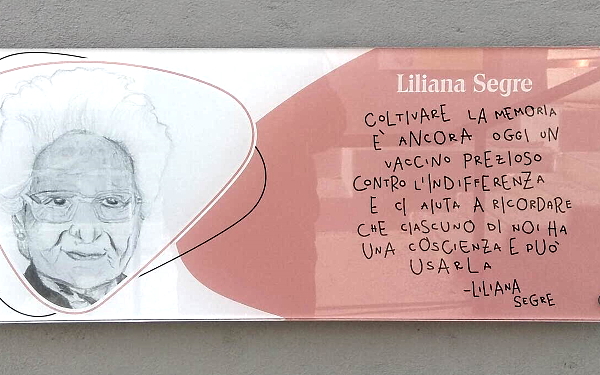 Liliana Segre
COLTIVARE LA MEMORIA
E' ANCORA OGGI UN
VACCINO PREZIOSO
CONTRO L'INDIFFERENZA
E CI AIUTA A RICORDARE
CHE CIASCUNO DI NOI HA
UNA COSCIENZA E PUO'
USARLA
-LILIANA
SEGRE